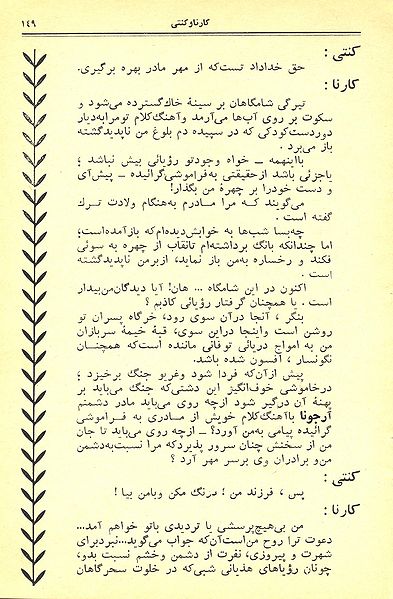 کارنا و کنتی
۱۴۹
کنتی :
حق خداداد تست که از مهر مادر بهره برگیری.
کارنا :
تیرگی شامگاهان بر سینهٔ خاک گسترده می‌شود و
سکوت بر روی آب‌ها می‌آرمد و آهنگ کلام تو مرا به دیار
دوردست کودکی که در سپیده دم بلوغ من ناپدید گشته
باز می‌برد.
با اینهمه ــ خواه وجود تو رؤیائی بیش نباشد ؛
یا جزئی باشد از حقیقتی به فراموشی گرائیده ــ پیش آی
و دست خود را بر چهرهٔ من بگذار!
می‌گویند که مرا مادرم به هنگام ولادت ترک
گفته است .
چه بسا شب‌ها به خوابش دیده‌ام که باز آمده است؛
اما چندانکه بانگ برداشته‌ام تا نقاب از چهره به سوئی
فکند و رخساره به من باز نماید، از بر من ناپدید گشته
است .
اکنون در این شامگاه ... هان! آیا دیدگان من بیدار
است . یا همچنان گرفتار رؤیائی کاذبم ؟
بنگر ، آنجا در آن سوی رود، خرگاه پسران تو
روشن است و اینجا در این سوی، قبهٔ خیمهٔ سربازان
من به امواج دریائی توفانی ماننده است که همچنان
نگونسار ، افسون شده باشد.
پیش از آن که فردا شود و غریو جنگ برخیزد ؛
در خاموشی خوف‌انگیز این دشتی که جنگ می‌باید بر
پهنهٔ آن درگیر شود از چه روی می‌باید مادر دشمنم
آرجونا با آهنگ کلام خویش از مادری به فراموشی
گرائیده پیامی به من آورد؟ ــ از چه روی می‌باید تا جان
من از سخنش چنان سرور پذیرد که مرا نسبت به دشمن
من و برادران وی بر سر مهر آرد ؟
کنتی :
پس ، فرزند من ؛ درنگ مکن و با من بیا !
کارنا :
من بی‌هیچ پرسشی یا تردیدی با تو خواهم آمد...
دعوت ترا روح من است آن‌که جواب می‌گوید... نبرد برای
شهرت و پیروزی، نفرت از دشمن و خشم نسبت بدو،
چونان رؤیاهای هذیانی شبی که در خلوت سحرگاهان